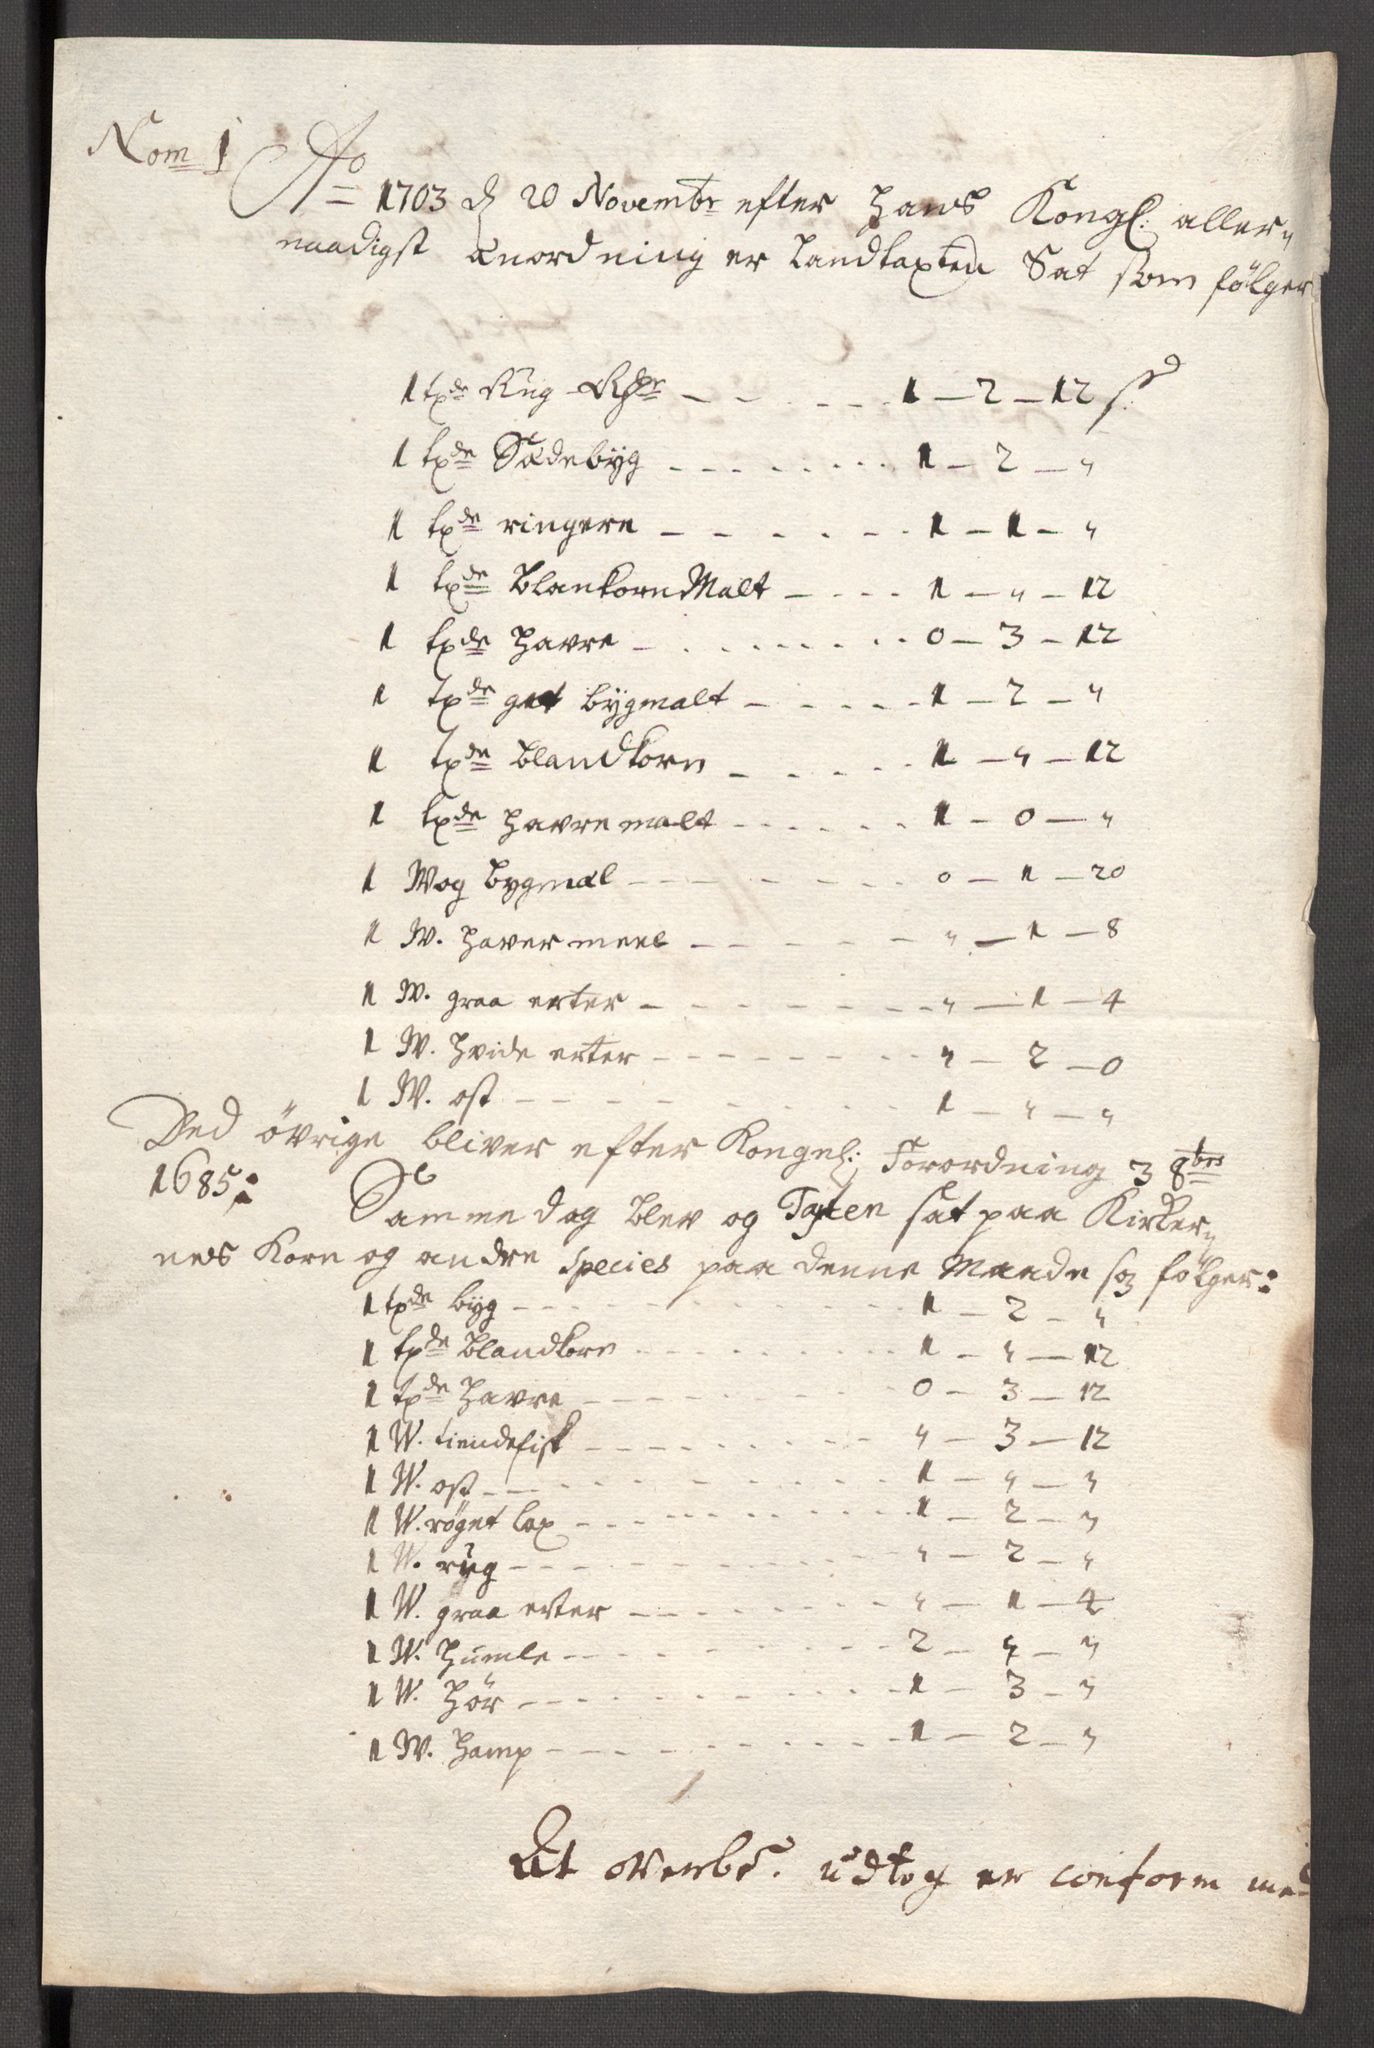 Nom 1
Ao 1703 d 20 Novembr efter Hans Kongl: aller„
naadigst anordning er Landtaxten Sat som fölger
1 txde Rug Rdr - - - - - 1 — 2 — 12 s
1 txde Sædebyg - - - - - 1 — 2 — „
1 txde ringere - - - - - 1 — 1 — „
1 txde Blankorn Malt - - - - 1 — „ — 12
1 txde Havre - - - - - 0 — 3 — 12
1 txde got bygmalt - - - - - 1 — 2 — „
1 txde blandkorn - - - - - 1 — „ — 12
1 txde Havre malt - - - - - 1 — 0 — „
1 Wog bygmæl - - - - - 0 — 1 — 20
1 W. Haver meel - - - - - „ — 1 — 8
1 W. graa erter - - - - - „ — 1 — 4
1 W. Hvide erter - - - - - „ — 2 — 0
1 W. ost - - - - - 1 — „ — „
Ded övrige bliver efter Kongel: Forordning 3 8brs
1685:
Samme dag blev og Taxten sat paa Kirker„
nes Korn og andre Species paa denne Maade sø fölger:
1 txde byg - - - - - 1 — 2 — „
1 txde blandkorn - - - - - 1 — „ — 12
1 txde Havre - - - - - 0 — 3 — 12
1 W. tiendefisk - - - - - „ — 3 — 12
1 W. ost - - - - - 1 — „ — „
1 W. röget lax - - - - - 1 — 2 — „
1 W. ryg - - - - - „ — 2 — „
1 W. graa erter - - - - - „ — 1 — 4
1 W. Humle - - - - - 2 — „ — „
1 W. Hör - - - - - 1 — 3 — „
1 W. Hamp - - - - - 1 — 2 — „
At overbe. udtog er conform med